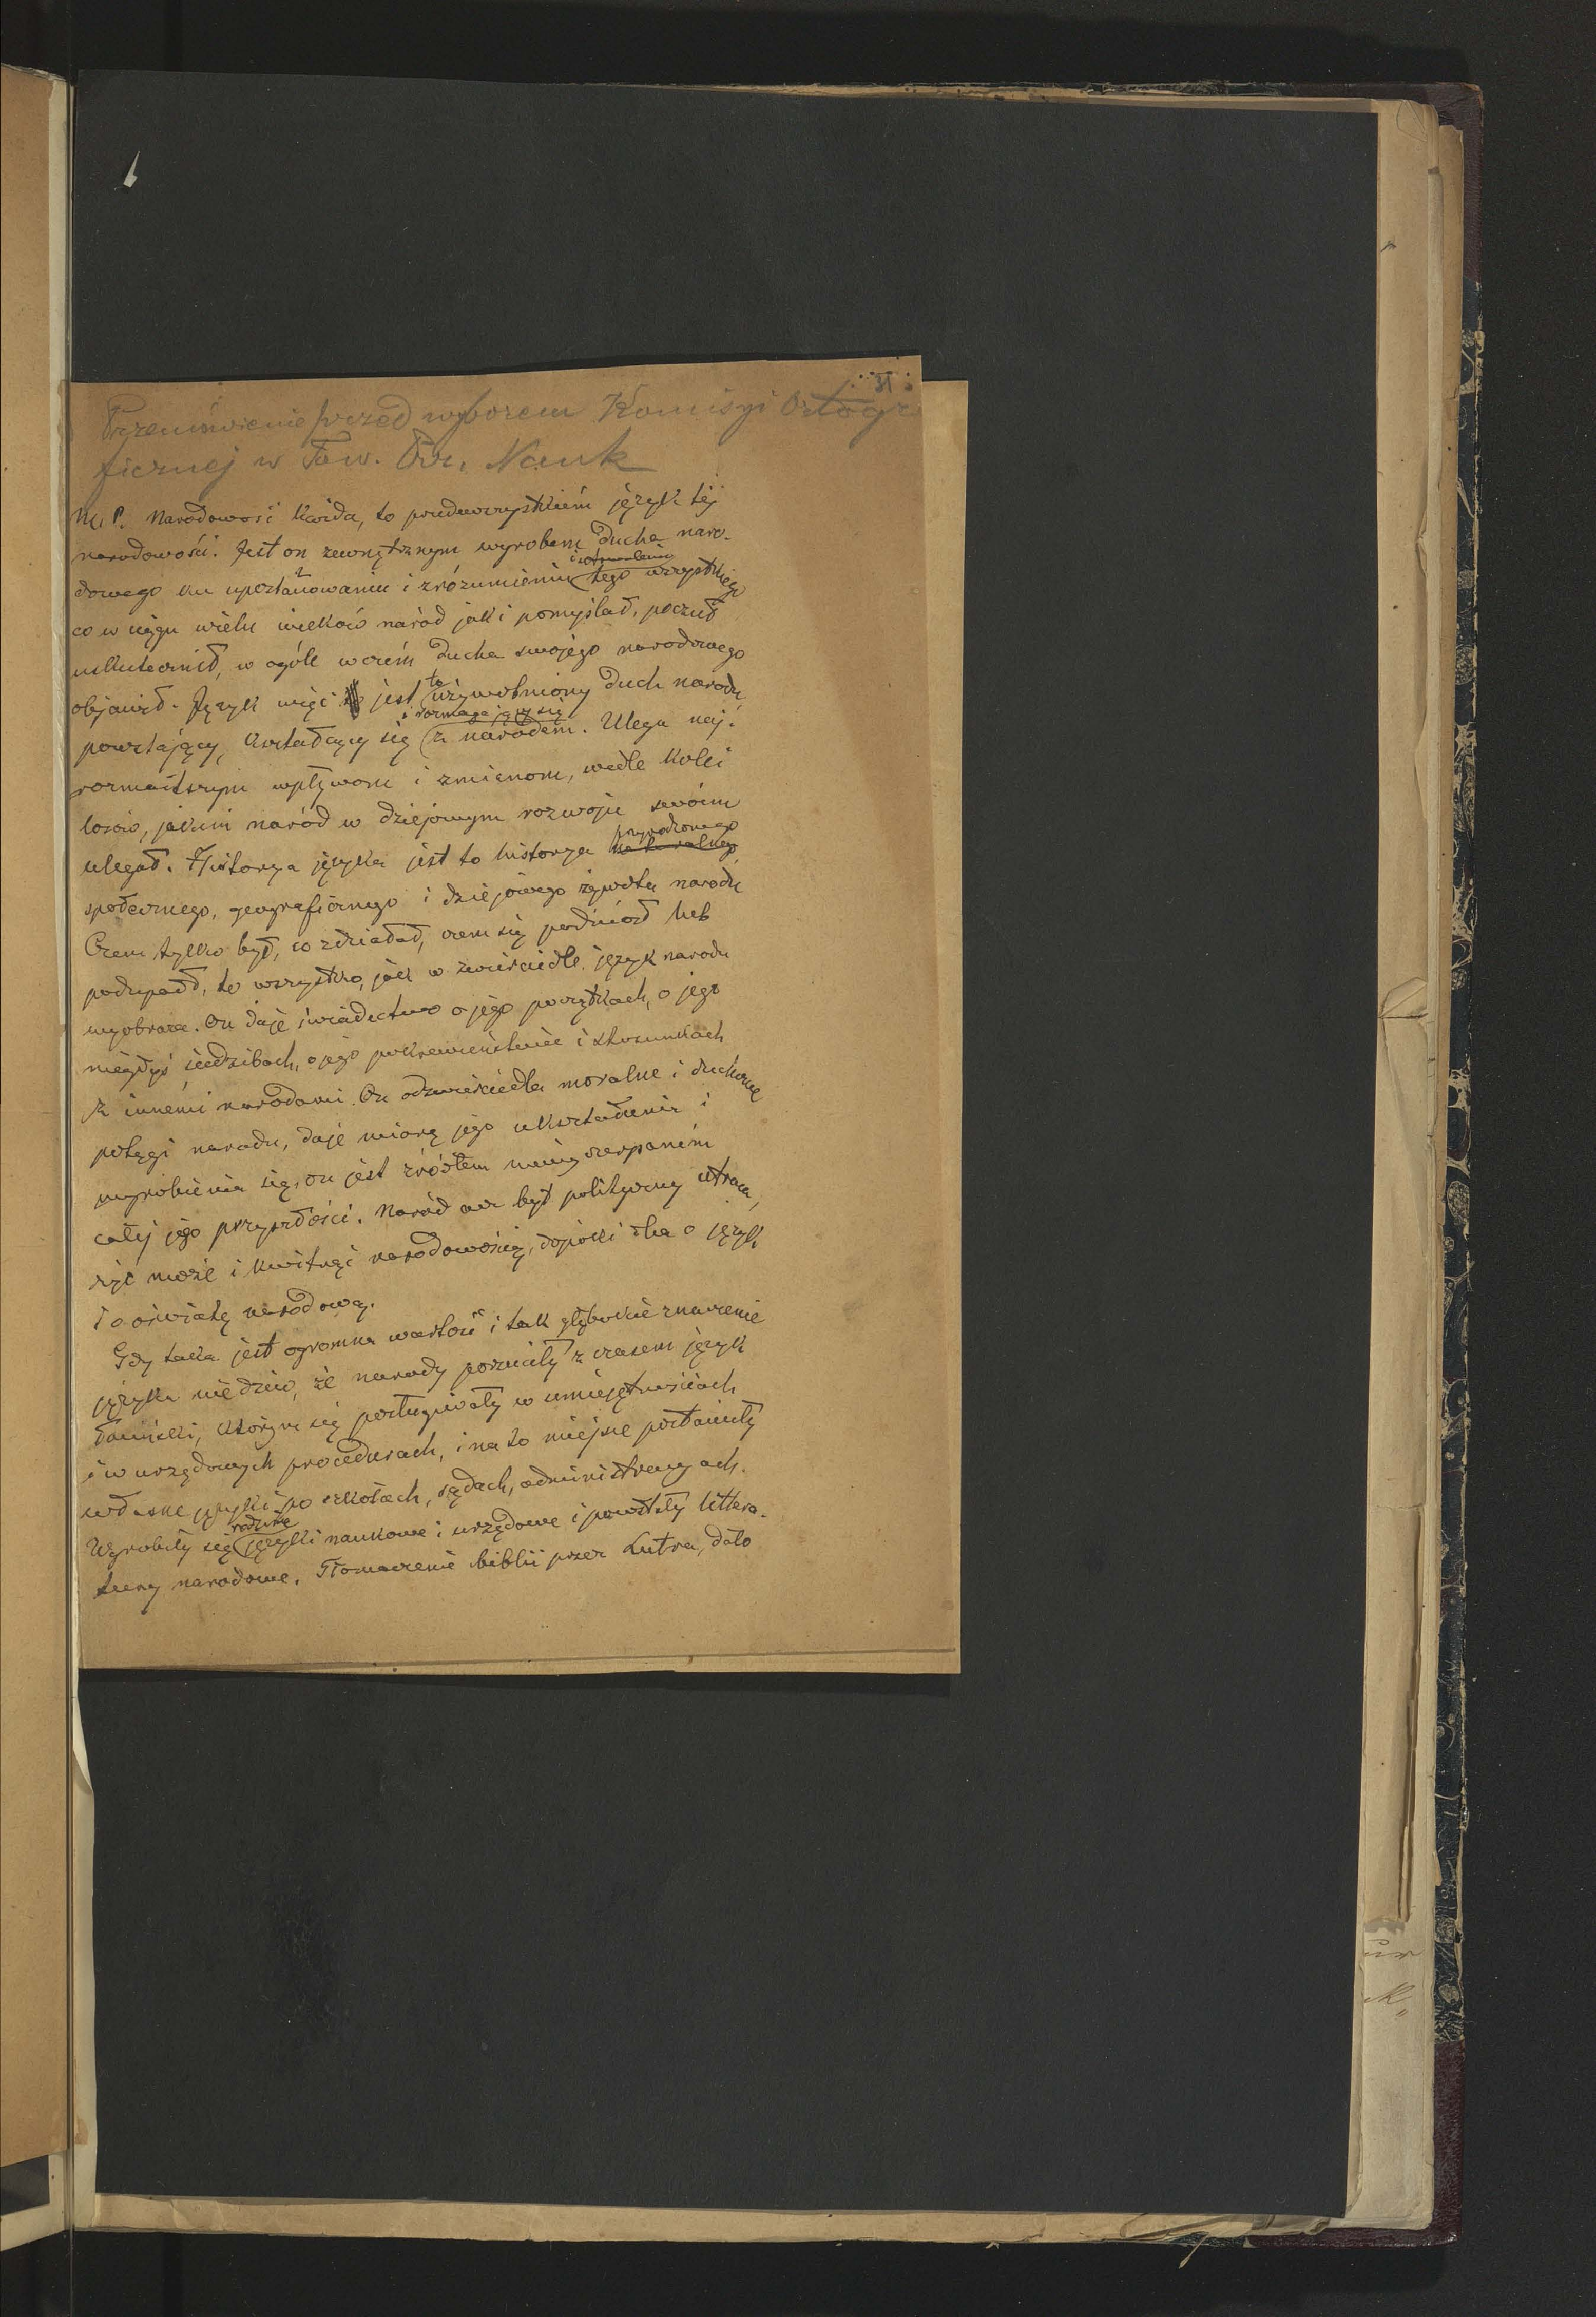 31
Przemówienie przed wyborem Komisyi Ortogra
ficznej w Tow. Prz. Nauk
M. P. Narodowość każda, to przedewszystkiem język tej
narodowości. Jest on zewnętrznym wyrobem ducha naro-
dowego ku uposztaciowaniu i zrozumieniu tego wszystkiego
co w ciągu wielu wieków naród jaki pomyślał, poczuł
uskutecznił, w ogóle w czém ducha swojego narodowego
objawił. Język więc jest to używotniony duch narodu
i wzmagający się
powstający, kształcący się z narodem. Ulega naj-
rozmaitszym wpływom i zmianom, wedle kolei
losów, jakim naród w dziejowym rozwoju swoim
przyrodzonego
ulegał. Historya języka jest to historya naturalnego
społecznego, geograficznego i dziejowego żywota narodu
Czem tylko był, co zdziałał, czem się podniósł lub
podupadł, to wszystko, jak w zwierciedle język narodu
wyobraża. On daje świadectwo o jego początkach, o jego
niegdyś siedzibach, o jego pokrewieństwie i stosunkach
z innémi narodami. On odzwierciedla moralne i duchowe
potęgi narodu, daje miarę jego ukształcenia i
wyrobienia się, on jest źródłem niewyczerpaném
całej jego przyszłości. Naród co byt polityczny utraca,
żyć może i kwitnąć narodowością, dopóki dba o język
i o oświatę narodową.
Gdy taka jest ogromna wartość i tak głębokie znaczenie
języka nie dziw, że narody porzuciły z czasem język
łaciński, którym się posługiwały w umiejętnościach
i w urzędowych procedurach, i na to miejsce postawiły
własne języki po szkołach, sądach, administracyach.
rodzime
Wyrobiły się języki naukowe i urzędowe i powstały littera-
tury narodowe. Tłomaczenie biblii przez Lutra, dało